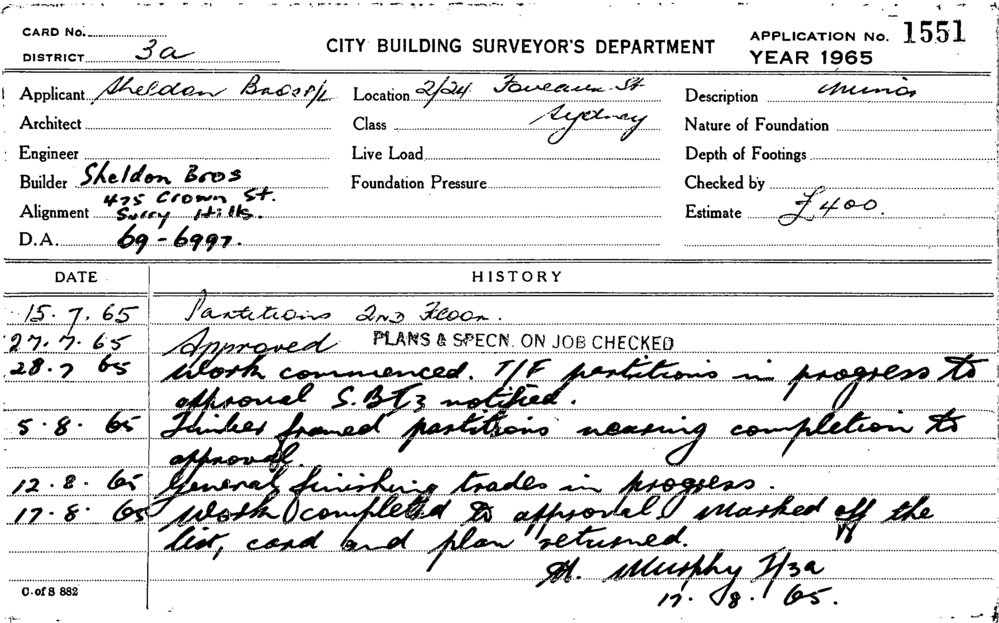 CARD No.
DISTRICT 3a
CITY BUILDING SURVEYOR'S DEPARTMENT
APPLICATION No. 1551
YEAR 1965
Applicant Sheldon Bros P/L Location 2/24 Foveaux St Description Minor
Architect Class Sydney Nature of Foundation
Engineer Live Load Depth of Footings
Builder Sheldon Bros Foundation Pressure Checked by
475 Crown St.
Alignment Surry Hills. Estimate £400.
D.A. 69-6997.
DATE HISTORY
15.7.65 Partitions 2ND Floor.
27.7.65 Approved PLANS & SPECN. ON JOB CHECKED
28.7 65 Work commenced. T/F partitions in progress to
approval S.B.I3 notified.
5.8.65 Timber framed partitions nearing completion to
approval.
12.8.65 General finishing trades in progress.
17.8.65 Work completed to approval. Marked off the
list, card and plan returned.
M. Murphy I/3a
17.8.65.
C. of S 882